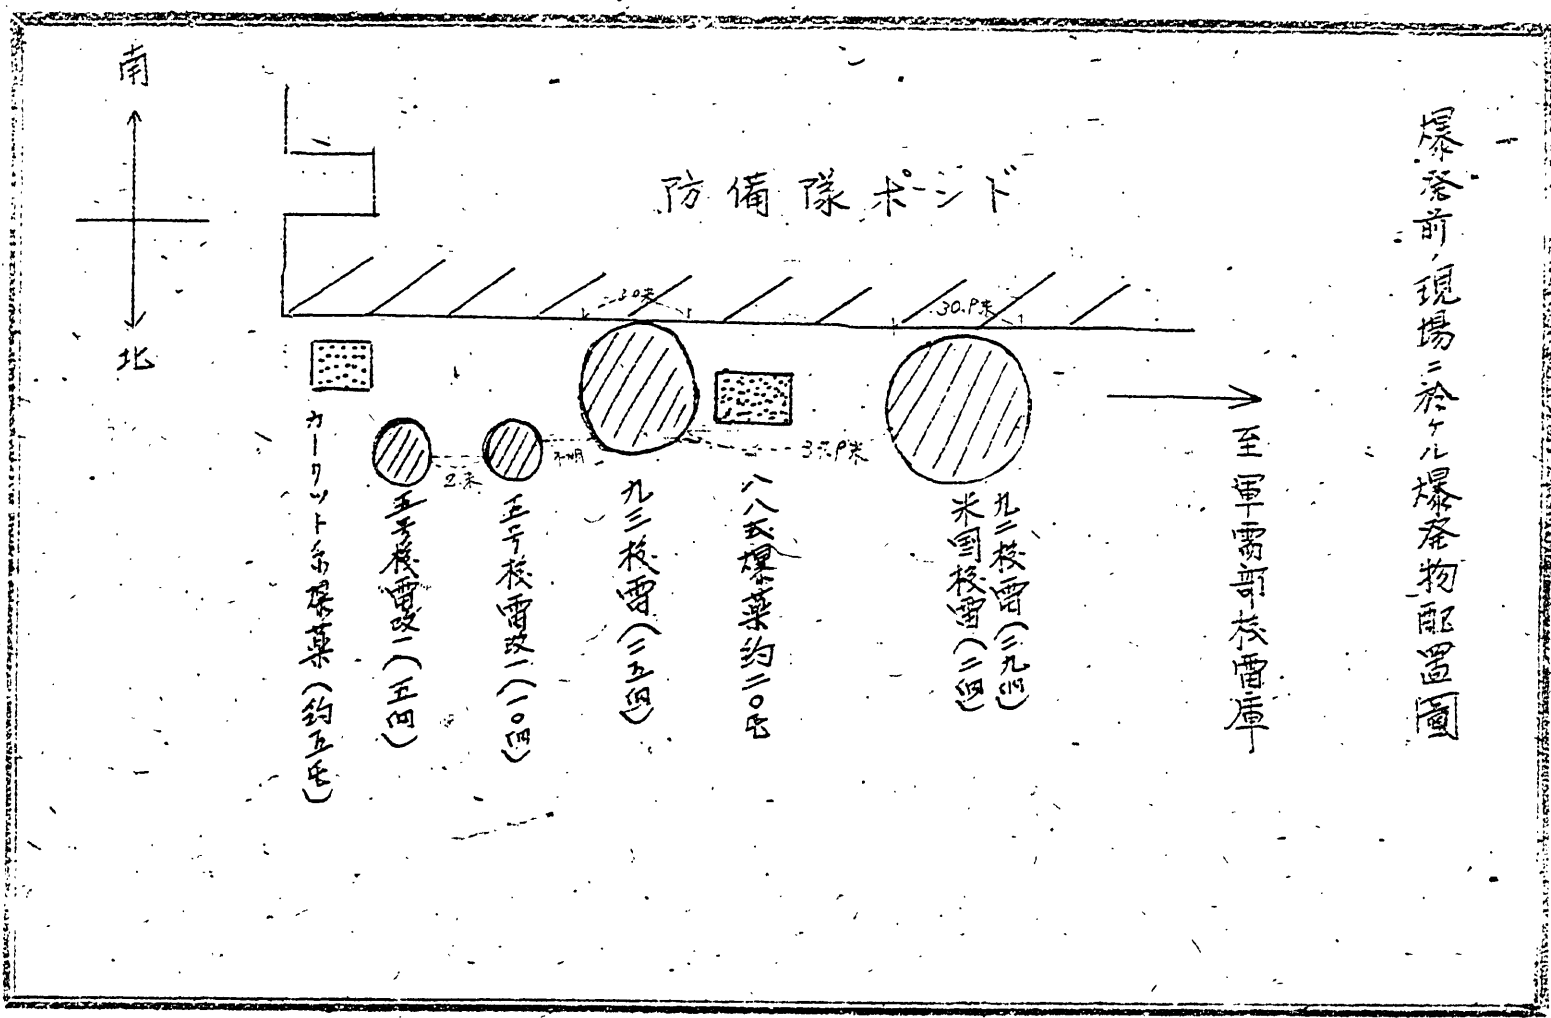 爆発前ノ現場ニ於ケル爆発物配置圖
南
北
防備隊ポンド
30米
30.9米
2米
不明
至軍需部核雷庫
九二核雷(二九個)
米国核雷(二個)
八八式爆薬約二〇屯
九三核雷(二五個)
五号核雷改一(一〇個)
五号核雷改一(五個)
カーリット系爆薬(約五屯)